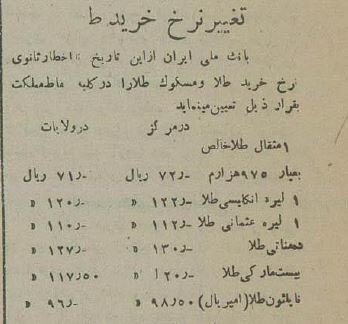 تغییر نرخ خرید ط
بانک ملی ایران از این تاریخ تا اخطار ثانوی
نرخ خرید طلا و مسکوک طلا را در کلیه نقاط مملکت
بقرار ذیل تعیین مینماید
در مرکز در ولایات
۱ مثقال طلا خالص
بعیار ۹۷۵ هزارم ۷۲٫۰ ریال ۷۱٫۰ ریال
۱ لیره انگلیسی طلا ۱۲۲٫۰ » ۱۲۰٫۰ »
۱ لیره عثمانی طلا ۱۱۲٫۰ » ۱۱۰٫۰ »
دهمناتی طلا ۱۳۰٫۰ » ۱۲۷٫۰ »
بیست مارکی طلا ۱۲۰٫۰ » ۱۱۷٫۵۰ »
ناپلئون طلا (امپریال) ۹۸٫۵۰ » ۹۶٫۰ »